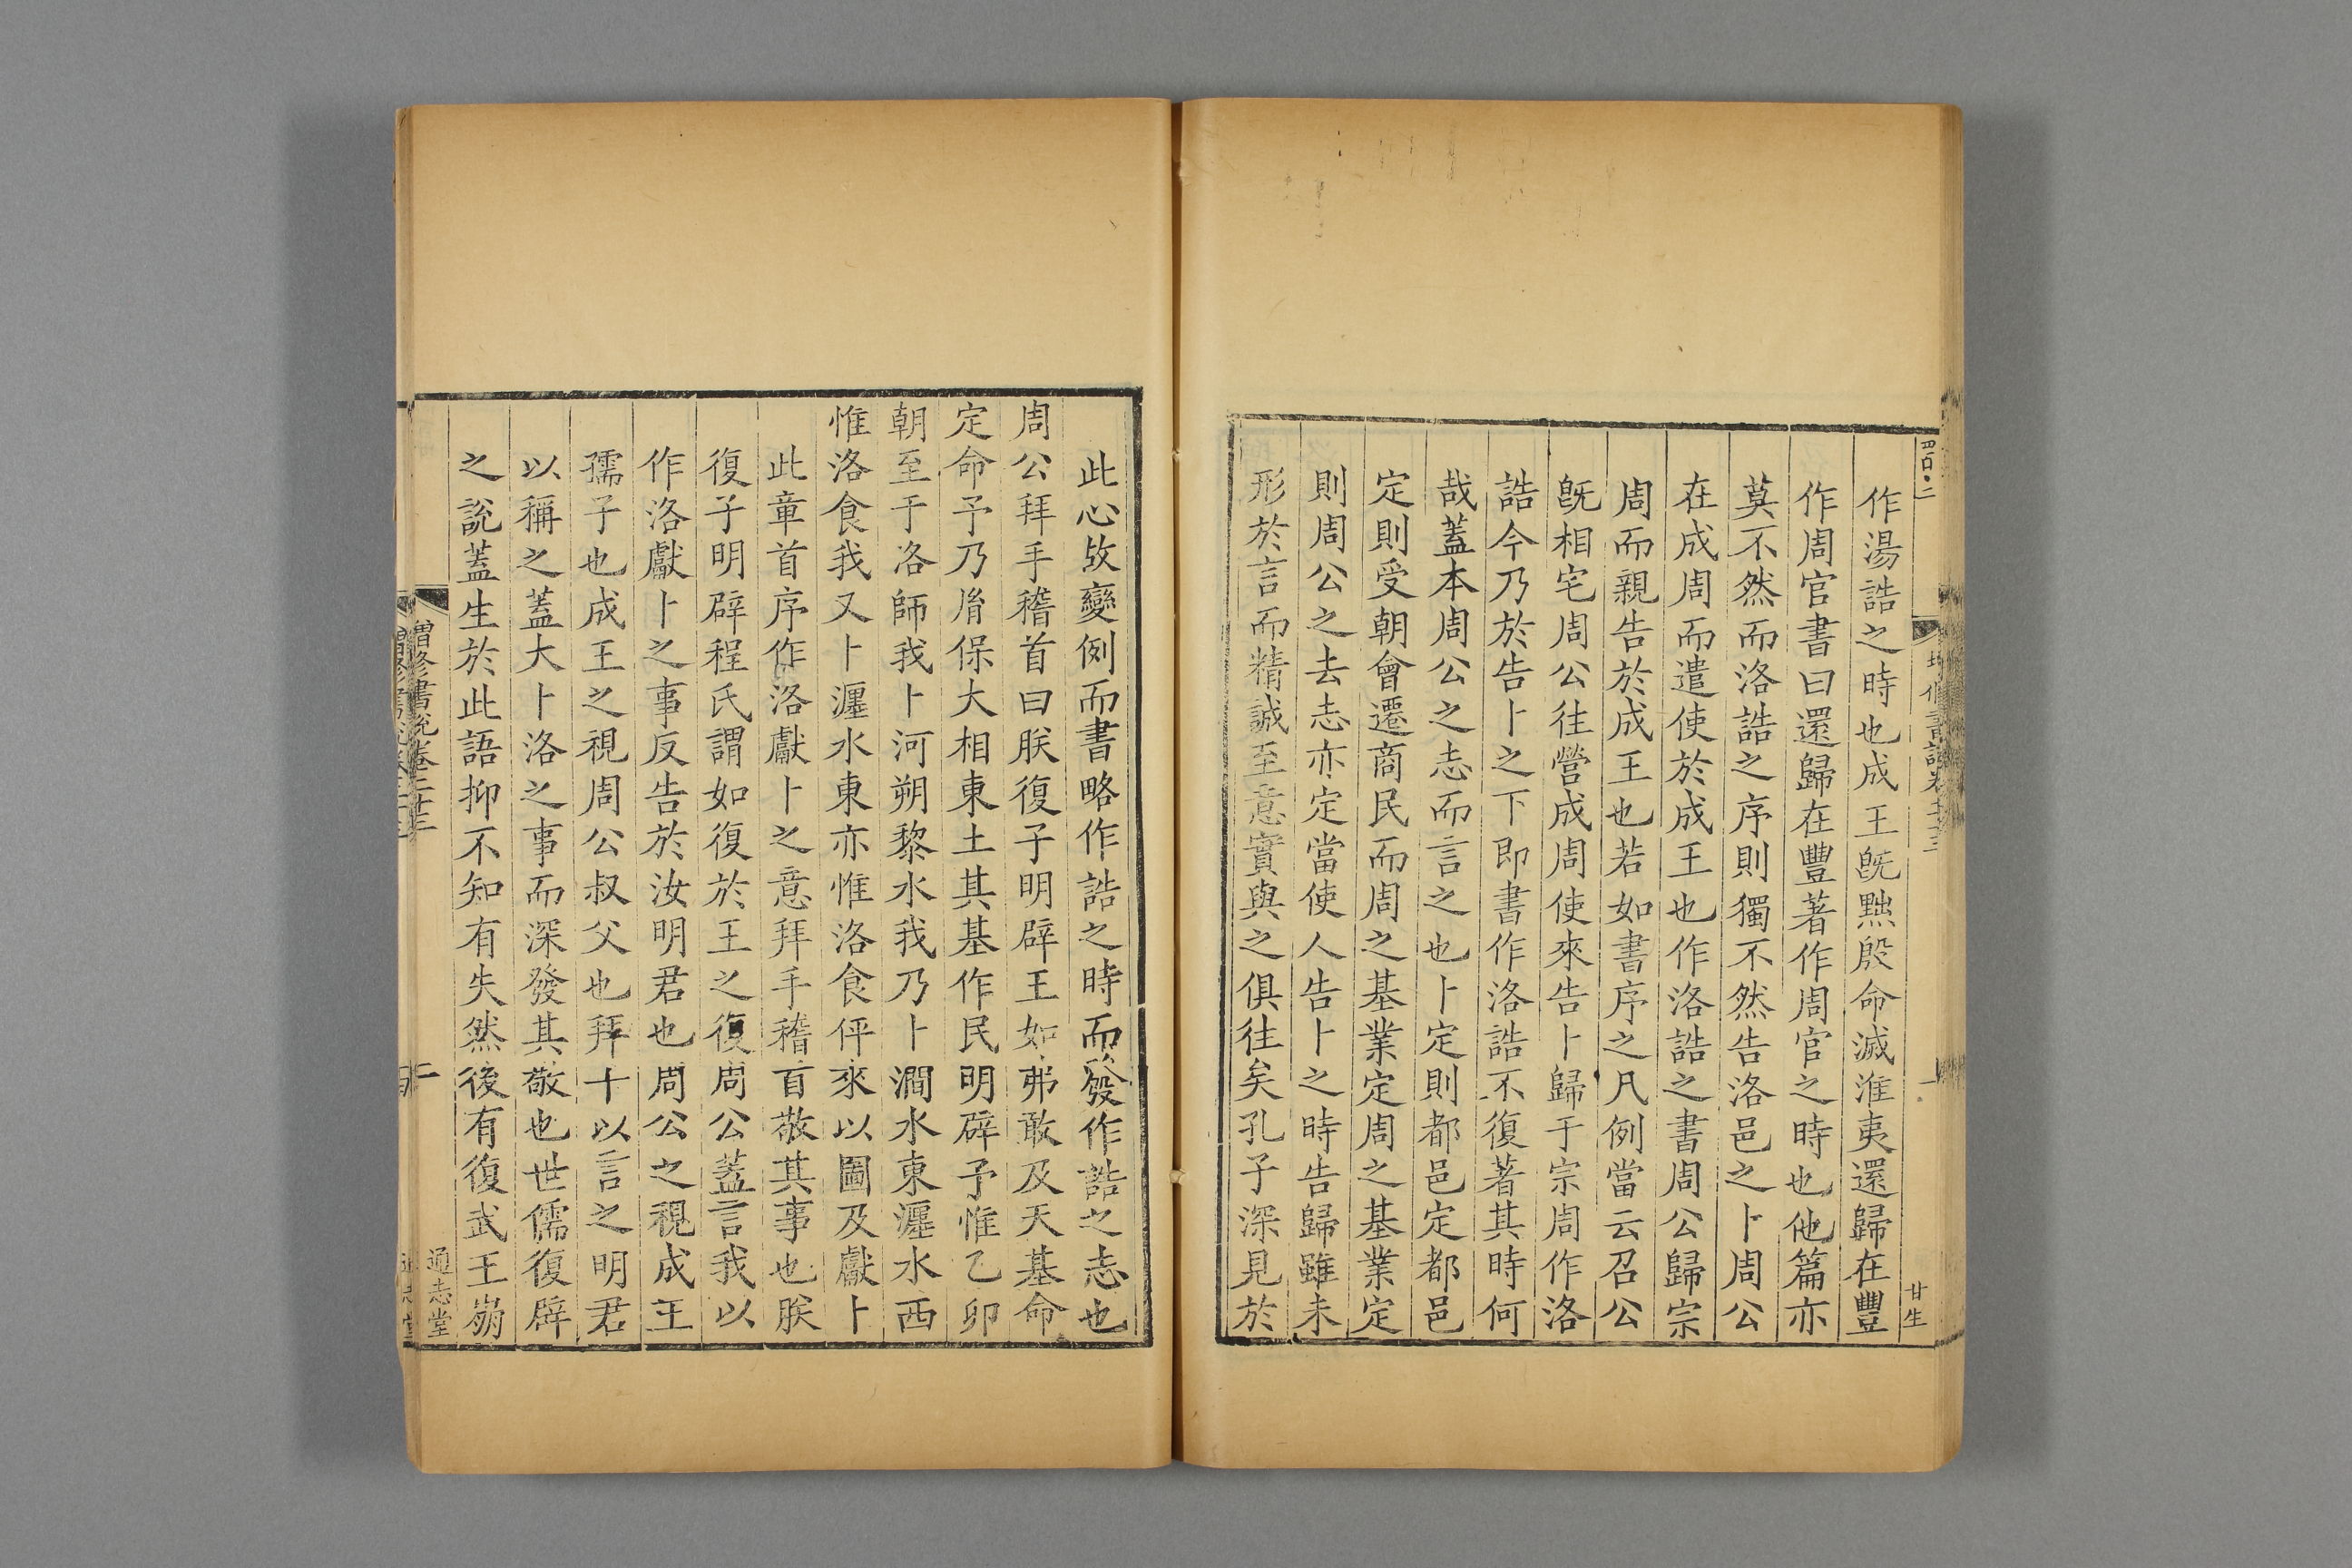 作湯誥之時也成王旣黜殷命滅淮夷還歸在豐
作周官書曰還歸在豐著作周官之時也他篇亦
莫不然而洛誥之序則獨不然告洛邑之卜周公
在成周而遣使於成王也作洛誥之書周公歸宗
周而親告於成王也若如書序之凡例當云召公
旣相宅周公往營成周使來告卜歸于宗周作洛
誥今乃於告卜之下即書作洛誥不復著其時何
哉蓋本周公之志而言之也卜定則都邑定都邑
定則受朝會遷商民而周之基業定周之基業定
則周公之去志亦定當使人告卜之時告歸雖未
形於言而精誠至意實與之俱往矣孔子深見於
此心故變例而書略作誥之時而發作誥之志也
周公拜手稽首曰朕復子明辟王如弗敢及天基命
定命予乃胤保大相東土其基作民明辟予惟乙卯
朝至于洛師我卜河朔黎水我乃卜澗水東瀍水西
惟洛食我又卜瀍水東亦惟洛食伻來以圖及獻卜
此章首序作洛獻卜之意拜手稽首敬其事也朕
復子明辟程氏謂如復於王之復周公蓋言我以
作洛獻卜之事反告於汝明君也周公之視成王
孺子也成王之視周公叔父也拜十以言之明君
以稱之蓋大卜洛之事而深發其敬也世儒復辟
之說蓋生於此語抑不知有失然後有復武王崩
增修書說卷二十三
二
通志堂